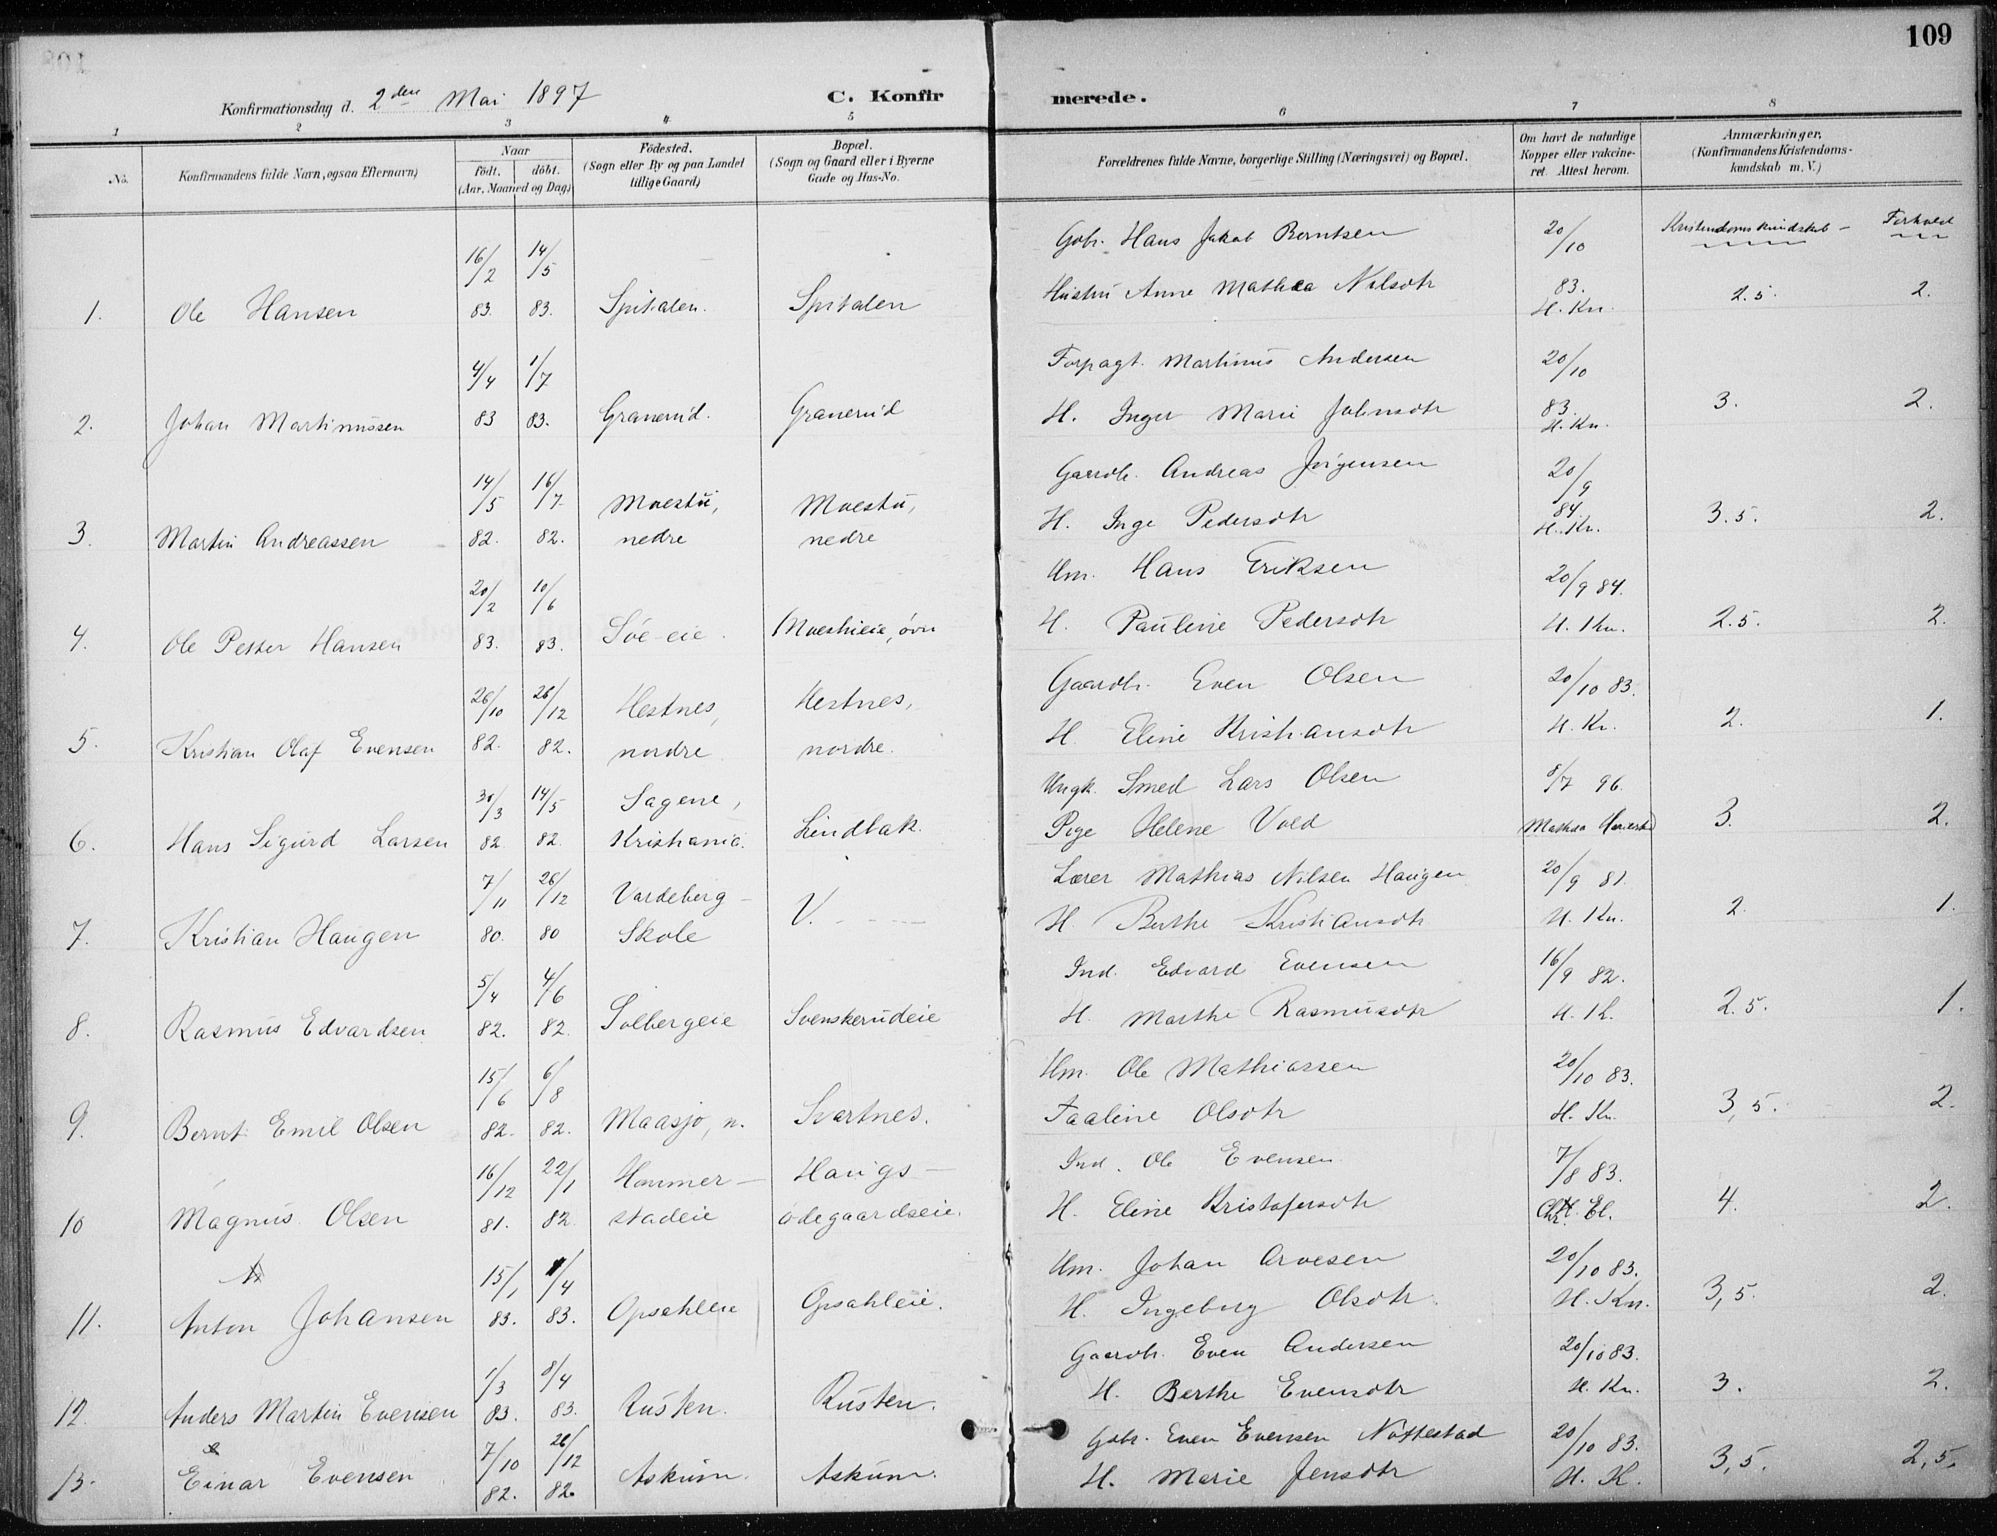 109
Konfirmationsdag d. 2den Mai 1897
C. Konfirmerede.
1 2 3 4 5 6 7 8
No.
Konfirmandens fulde Navn, ogsaa Efternavn)
Naar
født. døbt.
(Aar, Maaned og Dag)
Fødested.
(Sogn eller By og paa Landet
tillige Gaard)
Bopæl.
(Sogn og Gaard eller i Byerne
Gade og Hus-No.
Forældrenes fulde Navne, borgerlige Stilling (Næringsvei) og Bopæl.
Om havt de naturlige
Kopper eller vakcine-
ret. Attest herom.
Anmærkninger.
(Konfirmandens Kristendoms-
kundskab m. V.)
Kristendomskundskab — Forhold
Gbr. Hans Jakob Berntsen 20/10
16/2 14/5
1. Ole Hansen 83. 83. Spitalen. Spitalen Hustru Anne Mathea Nilsdtr 83. H. Kn. 2.5. 2.
4/4 1/7 Forpagt. Martinus Andersen 20/10
2. Johan Martinussen 83 83. Granerud. Granerud H. Inger Marie Johnsdtr 83. H. Kn. 3. 2.
14/5 16/7 Moestu, Moestu, Gaardb. Andreas Jörgensen 20/9
3. Martin Andreassen 82. 82. nedre nedre H. Inge Pedersdtr 84. H. Kn. 3.5. 2.
20/2 10/6 Hm. Hans Eriksen 20/9 84.
4. Ole Petter Hansen 83. 83. Söe-eie. Moestueie, övre H. Pauline Pedersdtr H. Kn. 2.5. 2.
26/10 26/12 Hestnes, Hestnes, Gaardb. Even Olsen 20/10 83.
5. Kristian Olaf Evensen 82. 82. nordre nordre. H. Eline Kristiansdtr H. Kn. 2. 1.
30/3 14/5 Sagene, Ungk. Smed Lars Olsen 8/7 96.
6. Hans Sigurd Larsen 82. 82. Kristiania. Lindbak. Pige Helene Vold Mathea 3. 2.
7/11 26/12 Vardeberg — V. Lærer Mathias Nilsen Haugen 20/9 81.
7. Kristian Haugen 80. 80 Skole H. Berthe Kristiansdtr H. Kn. 2. 1.
5/4 4/6 Ind. Edvard Evensen 16/9 82.
8. Rasmus Edvardsen 82. 82. Solbergeie Svenskerudeie H. Marthe Rasmusdtr H. K. 2.5. 1.
15/6 6/8 Hm. Ole Mathiassen 20/10 83.
9. Bernt Emil Olsen 82. 82. Maasjo, n. Svartnes. Taaline Olsdtr H. Kn. 3,5. 2.
16/12 22/1 Hammer — Haugs — Ind. Ole Evensen 7/8 83.
10 Magnus Olsen 81. 82. stadeie ödegaardseie. H. Eline Kristofersdtr Chr. El. 4. 2.
15/1 1/4 Hm. Johan Arvesen 20/10 83.
11. Anton Johansen 83. 83. Opsahleie Opsahleie. H. Ingeborg Olsdtr. H. Kn. 3,5. 2.
1/3 8/4 Gaardb. Even Andersen 20/10 83.
12. Anders Martin Evensen 83. 83. Rusten. Rusten. H. Berthe Evensdtr H. Kn. 3. 2.
7/10 26/12 Gbr. Even Evensen Nöttestad 20/10 83.
13. Einar Evensen 82. 82. Askum. Askum. H. Marie Jensdtr H. K. 3,5. 2,5.